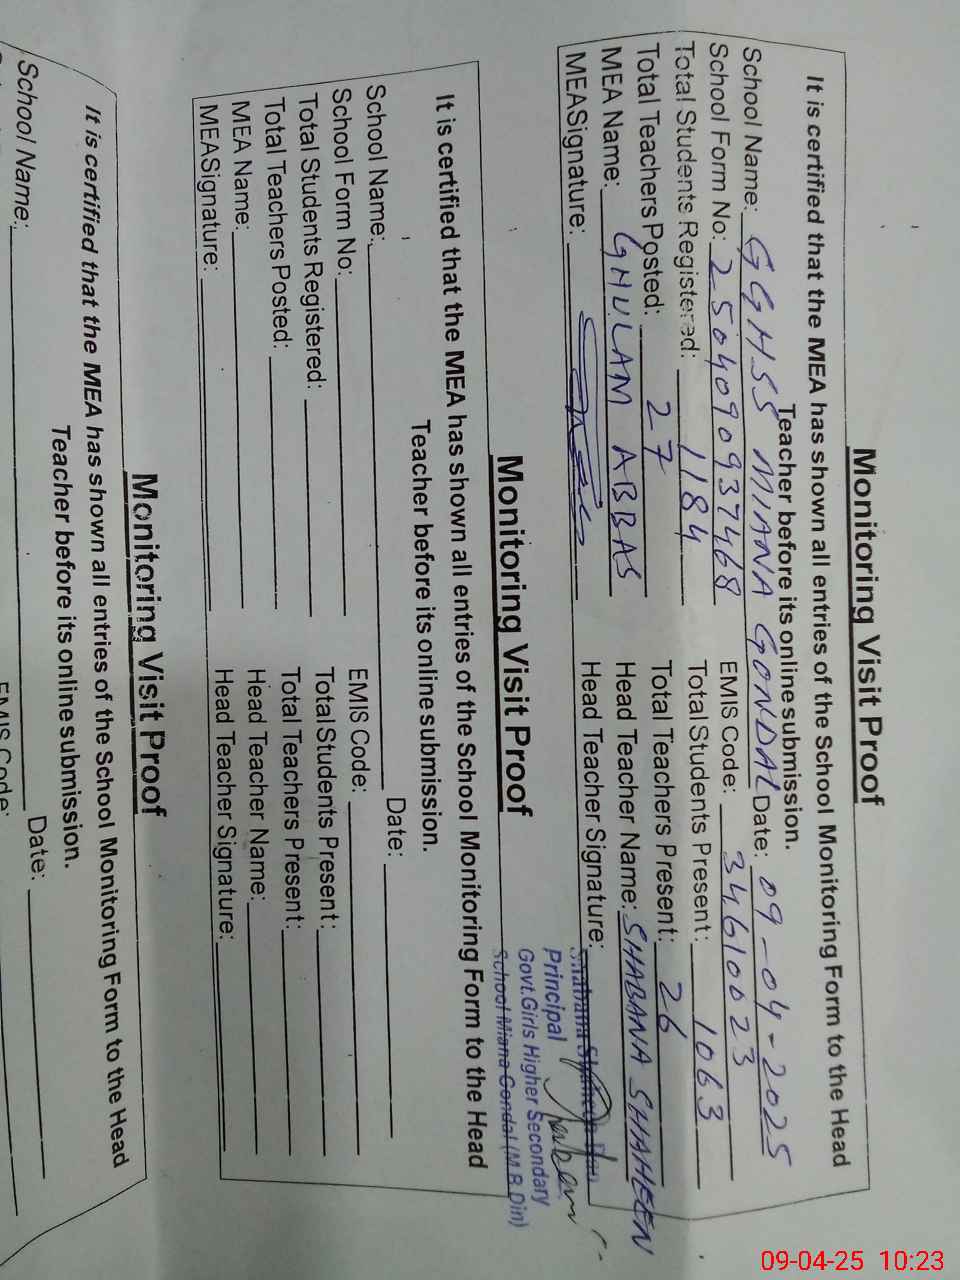 Monitoring Visit Proof
It is certified that the MEA has shown all entries of the School Monitoring Form to the Head
Teacher before its online submission.
School Name: GGHSS MIANA GONDAL Date: 09-04-2025
School Form No: 2504090937468 EMIS Code: 34610023
Total Students Registered: 1184 Total Students Present: 1063
Total Teachers Posted: 27 Total Teachers Present: 26
MEA Name: GHULAM ABBAS Head Teacher Name: SHABANA SHAHEEN
MEASignature: Head Teacher Signature:
Principal
Govt.Girls Higher Secondary
School Miana Gondal (M.B.Din)
Monitoring Visit Proof
It is certified that the MEA has shown all entries of the School Monitoring Form to the Head
Teacher before its online submission.
School Name: Date:
School Form No: EMIS Code:
Total Students Registered: Total Students Present:
Total Teachers Posted: Total Teachers Present:
MEA Name: Head Teacher Name:
MEASignature: Head Teacher Signature:
Monitoring Visit Proof
It is certified that the MEA has shown all entries of the School Monitoring Form to the Head
Teacher before its online submission.
School Name: Date:
EMIS Code:
09-04-25 10:23